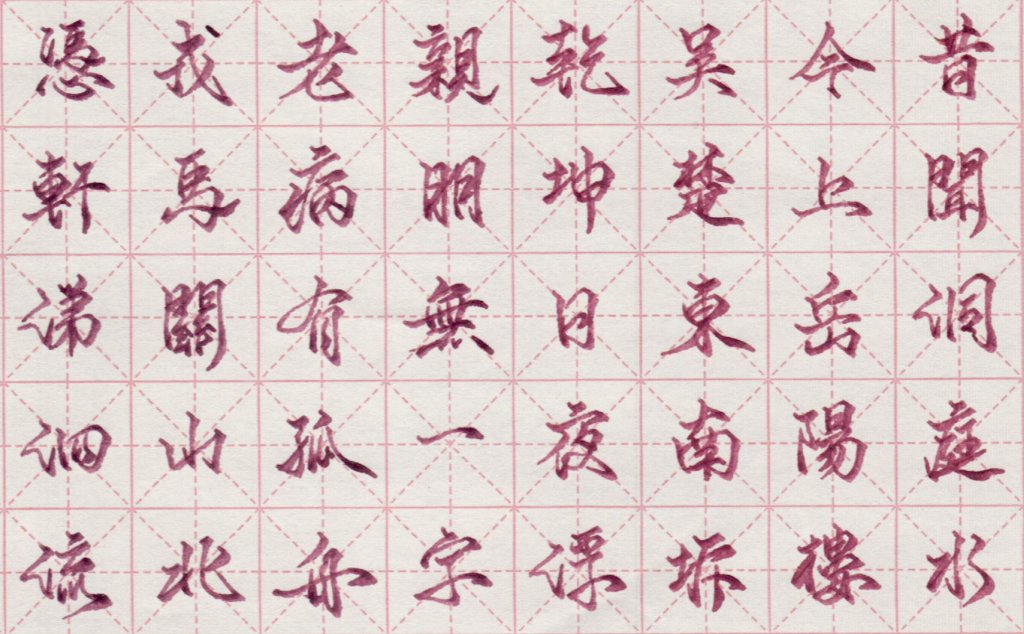 昔聞洞庭水
今上岳陽樓
吳楚東南坼
乾坤日夜浮
親朋無一字
老病有孤舟
戎馬關山北
憑軒涕泗流